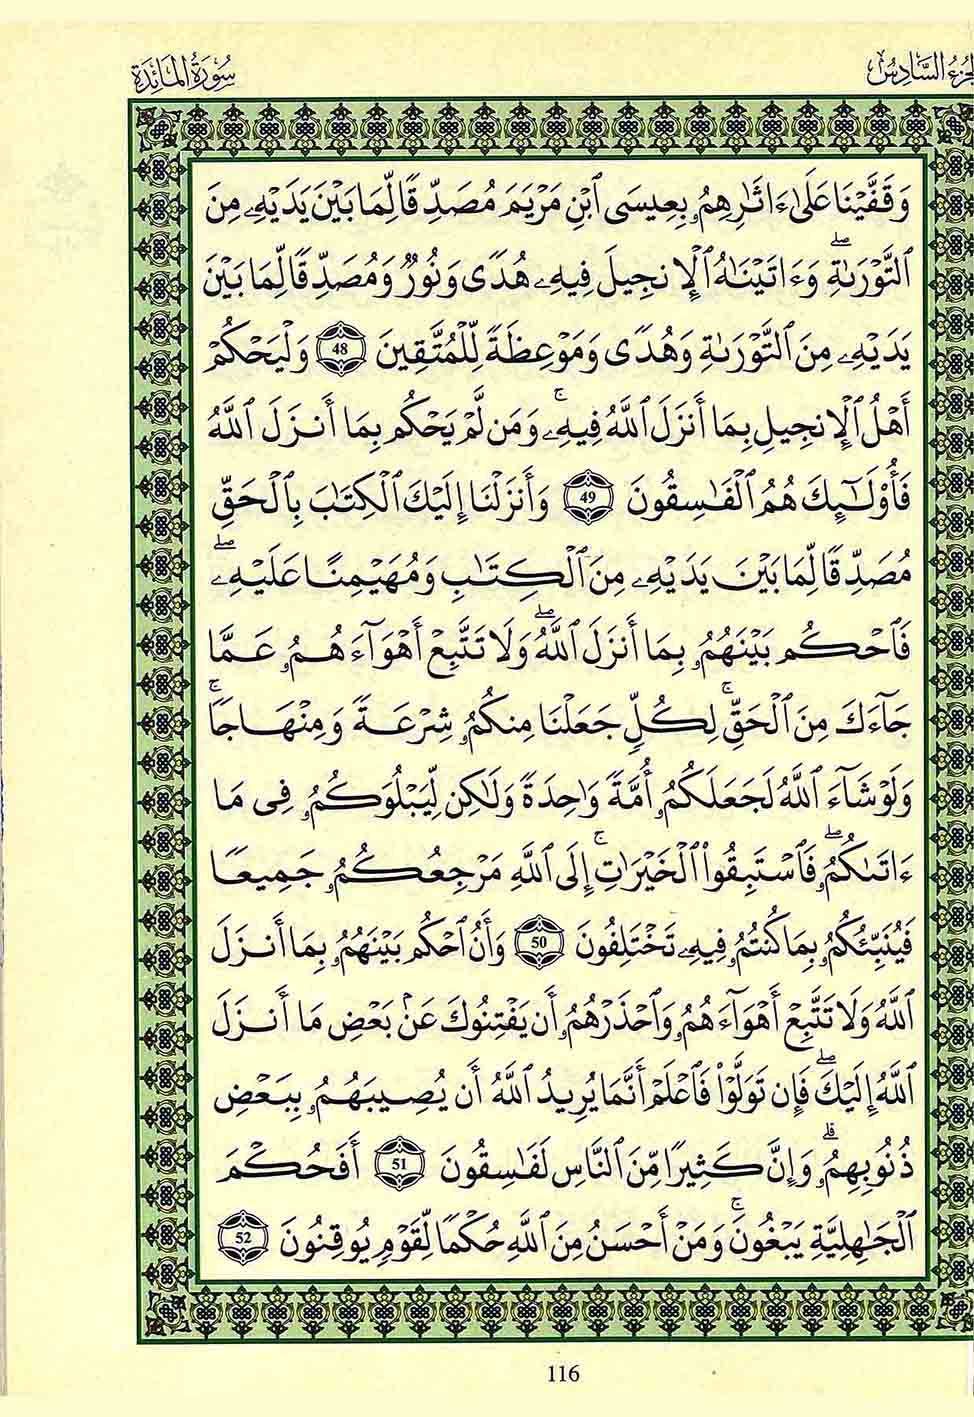 الجزء السادس
سورة المائدة
وَقَفَّيْنَا عَلَىٰ ءَاثَٰرِهِمُۥ بِعِيسَى ٱبْنِ مَرْيَمَ مُصَدِّقًا لِّمَا بَيْنَ يَدَيْهِۦ مِنَ
ٱلتَّوْرَىٰةِۖ وَءَاتَيْنَٰهُ ٱلْإِنجِيلَ فِيهِۦ هُدًى وَنُورٌ وَمُصَدِّقًا لِّمَا بَيْنَ
يَدَيْهِۦ مِنَ ٱلتَّوْرَىٰةِ وَهُدًى وَمَوْعِظَةً لِّلْمُتَّقِينَ 48 وَلْيَحْكُمْ
أَهْلُ ٱلْإِنجِيلِ بِمَا أَنزَلَ ٱللَّهُ فِيهِۦۚ وَمَن لَّمْ يَحْكُم بِمَا أَنزَلَ ٱللَّهُ
فَأُوْلَٰٓئِكَ هُمُ ٱلْفَٰسِقُونَ 49 وَأَنزَلْنَا إِلَيْكَ ٱلْكِتَٰبَ بِٱلْحَقِّ
مُصَدِّقًا لِّمَا بَيْنَ يَدَيْهِۦ مِنَ ٱلْكِتَٰبِ وَمُهَيْمِنًا عَلَيْهِۦۖ
فَٱحْكُم بَيْنَهُمُۥ بِمَا أَنزَلَ ٱللَّهُۖ وَلَا تَتَّبِعْ أَهْوَآءَهُمُۥ عَمَّا
جَآءَكَ مِنَ ٱلْحَقِّۚ لِكُلٍّ جَعَلْنَا مِنكُمُۥ شِرْعَةً وَمِنْهَاجًاۚ
وَلَوْ شَآءَ ٱللَّهُ لَجَعَلَكُمُۥ أُمَّةً وَٰحِدَةً وَلَٰكِن لِّيَبْلُوَكُمُۥ فِى مَا
ءَاتَىٰكُمُۥۖ فَٱسْتَبِقُوا۟ ٱلْخَيْرَٰتِۚ إِلَى ٱللَّهِ مَرْجِعُكُمُۥ جَمِيعًا
فَيُنَبِّئُكُمُۥ بِمَا كُنتُمُۥ فِيهِۦ تَخْتَلِفُونَ 50 وَأَنُ ٱحْكُم بَيْنَهُمُۥ بِمَا أَنزَلَ
ٱللَّهُ وَلَا تَتَّبِعْ أَهْوَآءَهُمُۥ وَٱحْذَرْهُمُۥ أَن يَفْتِنُوكَ عَنۢ بَعْضِ مَا أَنزَلَ
ٱللَّهُ إِلَيْكَۖ فَإِن تَوَلَّوْا۟ فَٱعْلَمْ أَنَّمَا يُرِيدُ ٱللَّهُ أَن يُصِيبَهُمُۥ بِبَعْضِ
ذُنُوبِهِمُۥۗ وَإِنَّ كَثِيرًا مِّنَ ٱلنَّاسِ لَفَٰسِقُونَ 51 أَفَحُكْمَ
ٱلْجَٰهِلِيَّةِ يَبْغُونَۚ وَمَنْ أَحْسَنُ مِنَ ٱللَّهِ حُكْمًا لِّقَوْمٍ يُوقِنُونَ 52
116